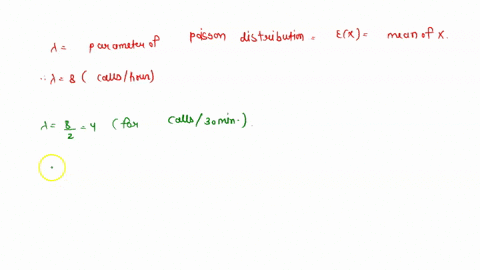 λ = parameter of poisson distribution = E(x) = mean of x.
∴ λ = 8 ( calls/hour)
λ = 8/2 = 4 (for calls/30 min.).